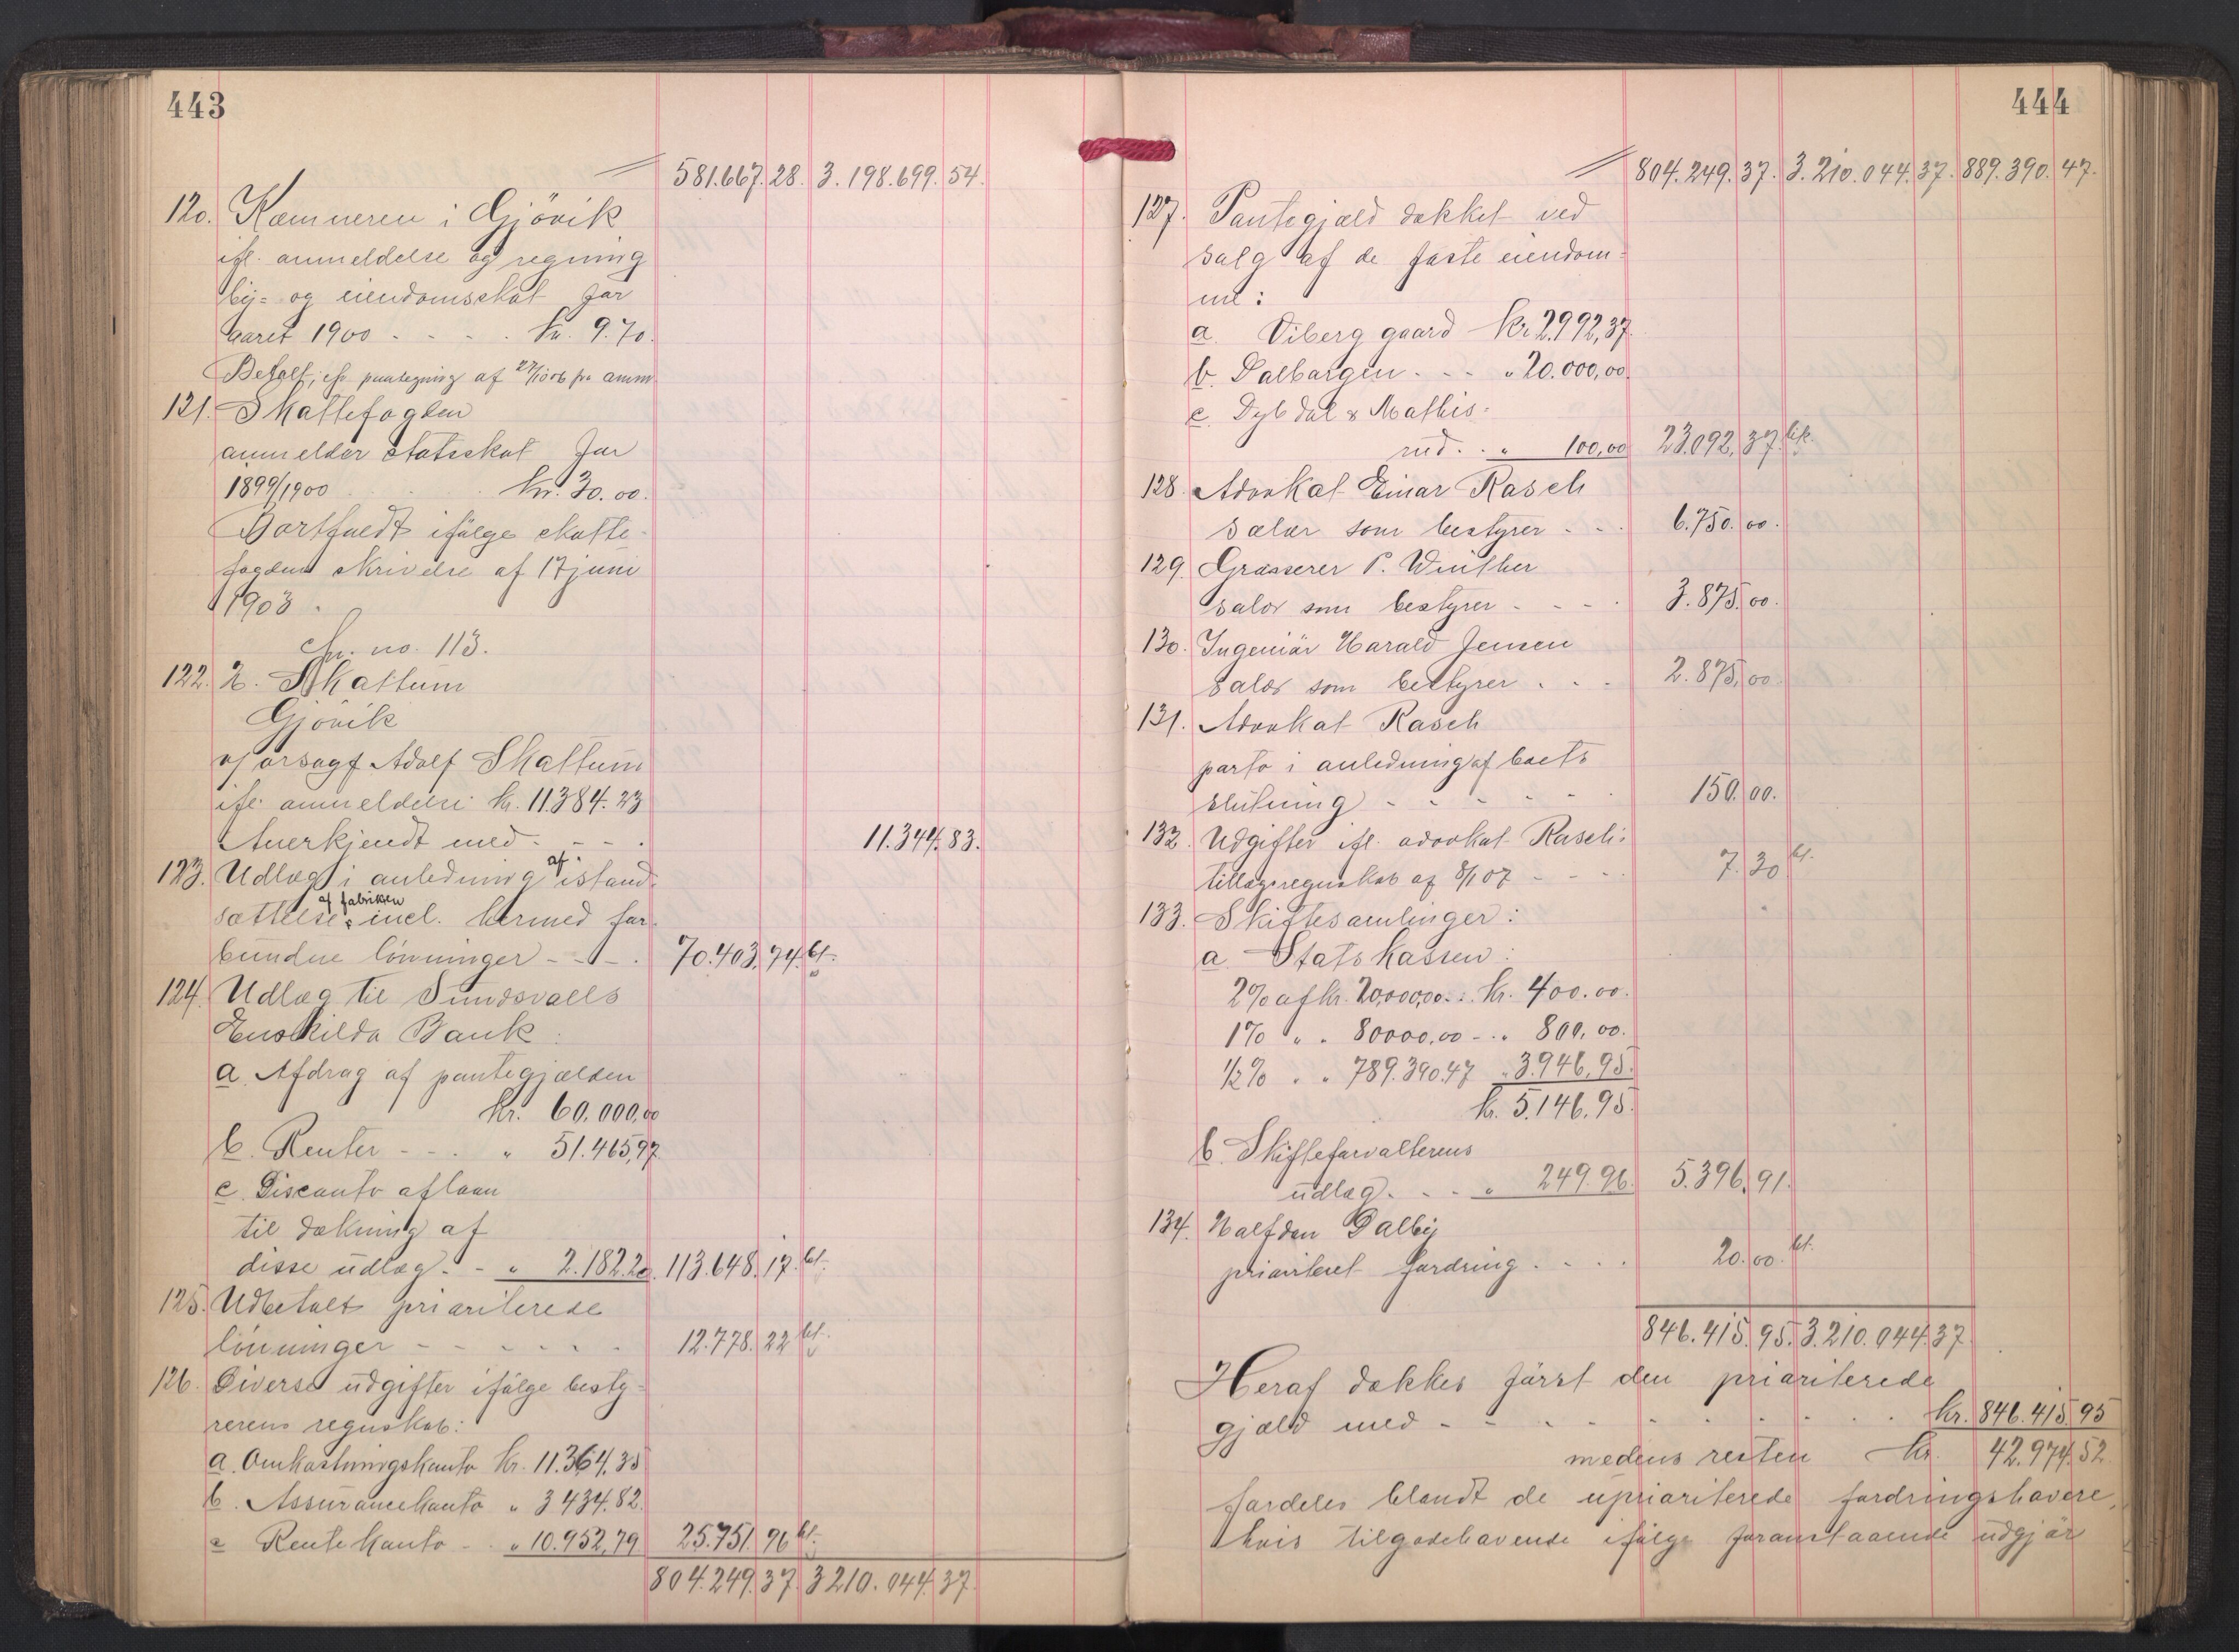 443
581.667.28. 3.198.699.54.
120. Kæmneren i Gjövik
ifl. anmeldelse og regning
by= og eiendomsskat for
aaret 1900 - - - . kr. 9.70.
Betalt, efr paategning af 27/10 06 på anm.
121. Skattefogden
anmelder statsskat for
1899/1900 . . kr. 30.00.
Bortfaldt ifølge skatte-
fogdens skrivelse af 17 juni
1903.
Cfr. no. 113.
122. L. Skattum
Gjövik
v/ orsagf Adolf Skattum
ifl. anmeldelse kr. 11.384.23
Anerkjendt med - - - . 11.344.83.
123. Udlæg i anledning af istand-
sættelse af fabrikken incl. hermed for-
bundne lönninger - - - . 70.403.74. bt.
124. Udlæg til Sundsvalls
Enskilda Bank:
a. Afdrag af pantegjælden
kr. 60.000,00
b. Renter - - . " 51.465,97
c. Disconto af laan
til dækning af
disse udlæg. - " 2.182.20. 113.648.17. bt.
125. Udbetalt prioriterede
lönninger - - - - - . 12.778.22 bt.
126. Diverse udgifter ifølge besty-
rerens regnskab:
a. Omkostningskonto kr. 11.364.35
b. Assurancekonto " 3434.82.
c Rentekonto - . " 10.952,79 25.751.96 bt.
804.249.37. 3210.044.37.
444
804.249.37. 3.210.044.37. 889.390.47.
127. Pantegjæld dækket ved
salg af de faste eiendom-
me:
a. Viberg gaard kr 2.992,37.
b. Dalborgen . - - " 20.000,00.
c. Dybdal & Mathis-
rud . . " 100,00 23.092.37. bt.
128. Advokat Einar Rasch
salær som bestyrer - - . 6.750.00.
129. Grosserer P. Winther
salær som bestyrer - - - . 3.875.00.
130. Ingeniör Harald Jensen
salær som bestyrer . - - 2.875.00.
131. Advokat Rasch
porto i anledning af boets
slutning - - - - - . 150.00.
132. Udgifter ifl. advokat Rasch's
tillægsregnskab af 8/1 07 - - - . 7.30 bt.
133. Skiftesamlinger:
a. Statskassen:
2% af kr. 20.000,00 . . kr. 400.00.
1% " " 80000,00 - . " 800,00.
1/2% " " 789.390.47 " 3.946.95.
kr. 5.146.95.
b. Skifteforvalterens
udlæg. . - - " 249.96. 5.396.91.
134. Halfdan Dalby
prioriteret fordring . - - . 20.00. bt.
846.415.95. 3.210.044.37
Heraf dækkes först den prioriterede
gjæld med - - - - - - - . . . kr. 846.415.95
medens resten kr. 42.974.52.
fordeles blandt de uprioriterede fordringshavere,
hvis tilgodehavende ifølge foranstaaende udgjör